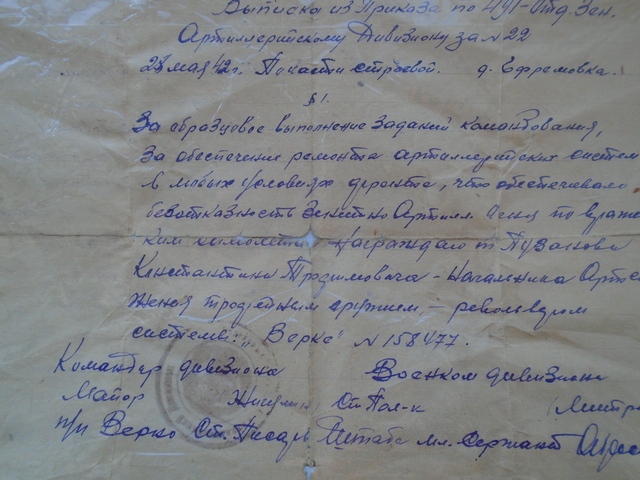 Выписка из Приказа по 491-Отд. Зен.
Артиллерийскому Дивизиону за N 22
28 мая 42 г. По части строевой. д. Ефремовка.
§ 1.
За образцовое выполнение заданий командования,
за обеспечение ремонта артиллерийских систем
в любых условиях фронта, что обеспечивало
безотказность Зенитно Артилл. огня по враже
ким самолетам Награждаю т. Пузанова
Константина Трофимовича - Начальника Артс
жения трофейным оружием — револьвером
системы: "Верке" N 158477.
Командир дивизиона Военком дивизиона
Майор Ст. Пол-к Митр
п/п Верно Ст. Писарь Штаба мл. Сержант